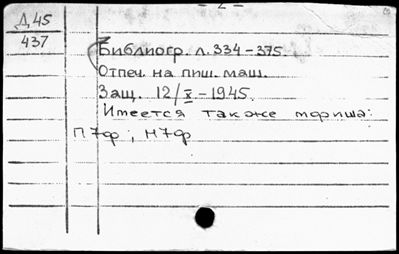 - 2 -
Д 45
437
Библиогр. л. 334-375.
Отпеч. на пиш. маш.
Защ. 12/X-1945.
Имеется также шифр:
П7ф ; Н7ф